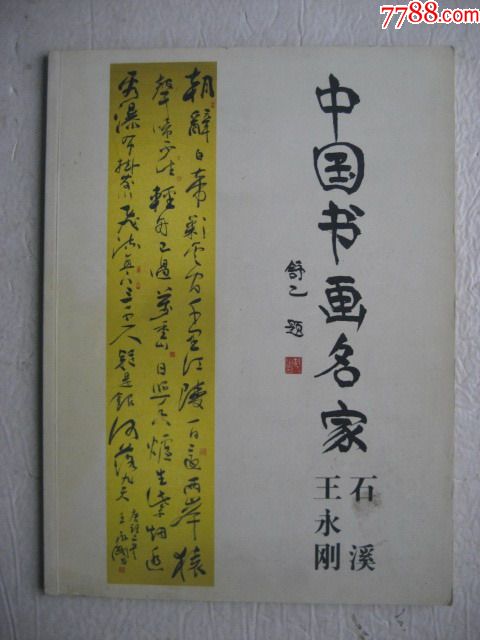 7788.com
中国书画名家
舒乙 题
石溪
王永刚
朝辭白帝彩云间千里江陵一日還两岸猿
聲啼不住輕舟已過萬重山日照香爐生紫烟遥
看瀑布掛前川飛流直下三千尺疑是銀河落九天